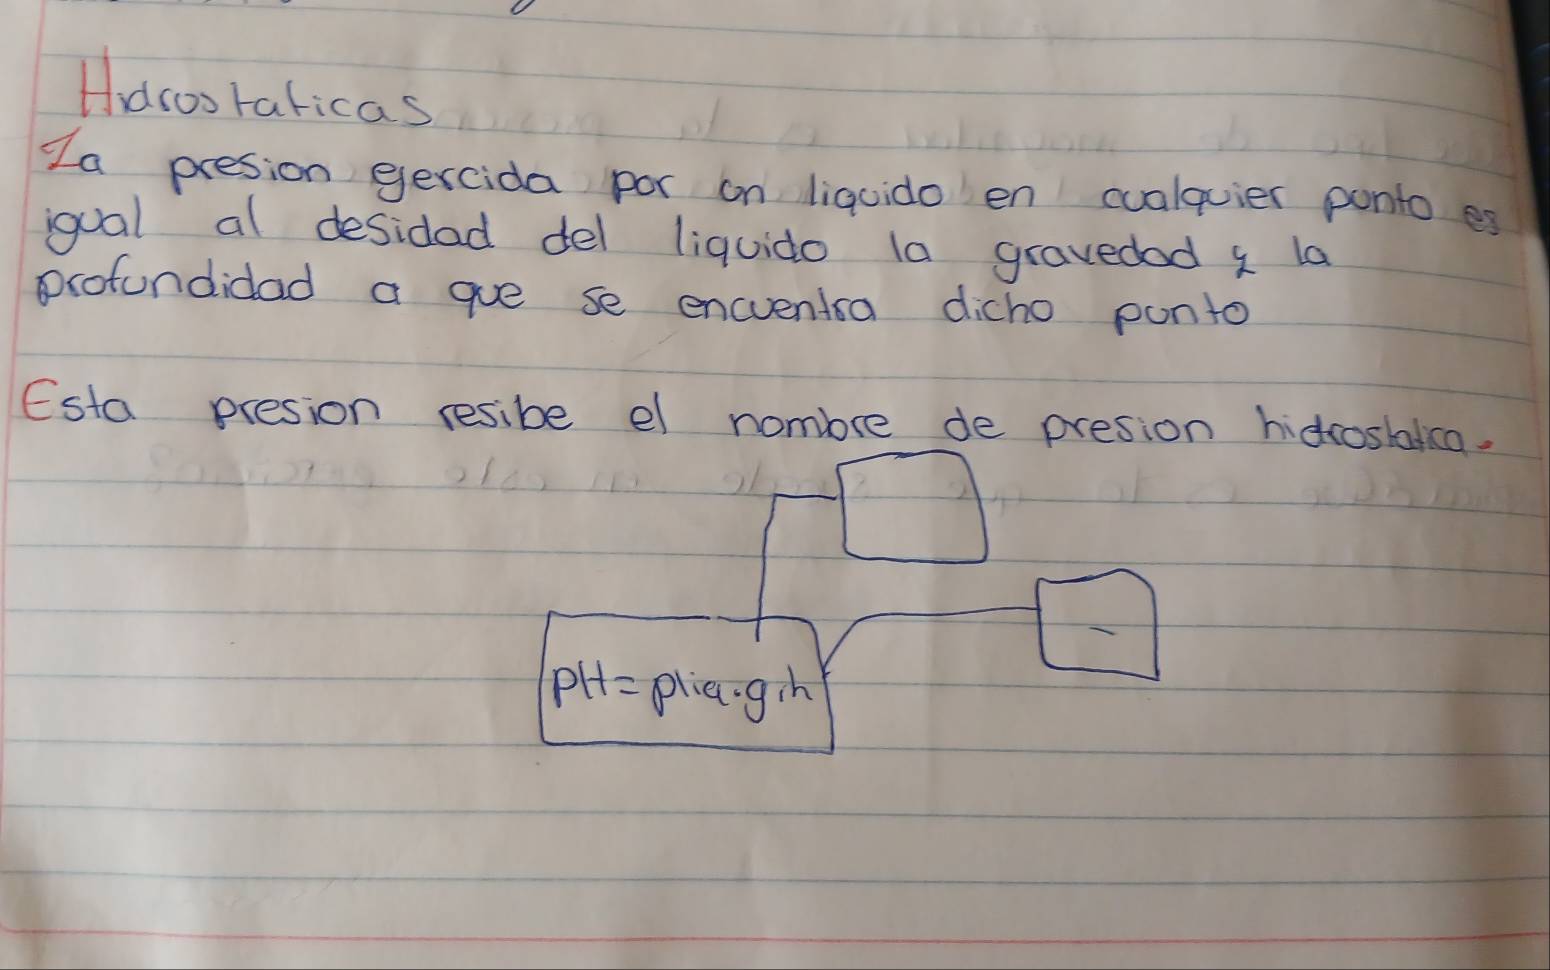 Hidrostaticas
La presion egercida por un liquido en cualquier punto es
igual al desidad del liquido la gravedad y la
profundidad a que se encuentra dicho punto
Esta presion resibe el nombre de presion hidrostatica.
PH = pliq.g.h